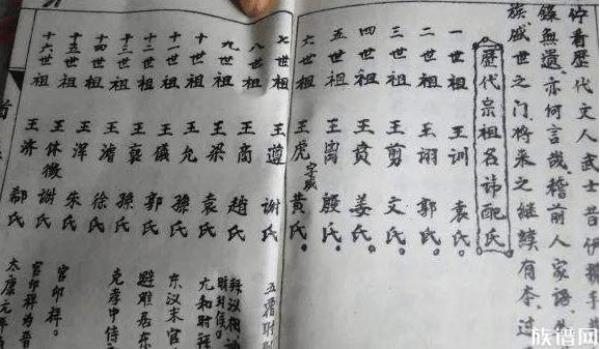 佇看歷代文人武士昔伊
錄無遺亦何言哉稽前人家語
族戚世之门将来之继续有本
歷代宗祖名諱配氏
一世祖 王训 袁氏。
二世祖 王翊 郭氏。
三世祖 王剪 文氏。
四世祖 王贲 姜氏。
五世祖 王离 殷氏。
六世祖 王虎 字威 黄氏。
七世祖 王遵 谢氏
八世祖 王商 赵氏
九世祖 王梁 袁氏
十世祖 王允 孫氏
十一世祖 王儀 郭氏
十二世祖 王襄 孫氏
十三世祖 王濬 徐氏
十四世祖 王渾 朱氏
十五世祖 王休徵 謝氏
十六世祖 王济 郗氏
东汉末官
避难居东
克孝中侍
官印祥。
官印祥为晋
太康元年
族谱网